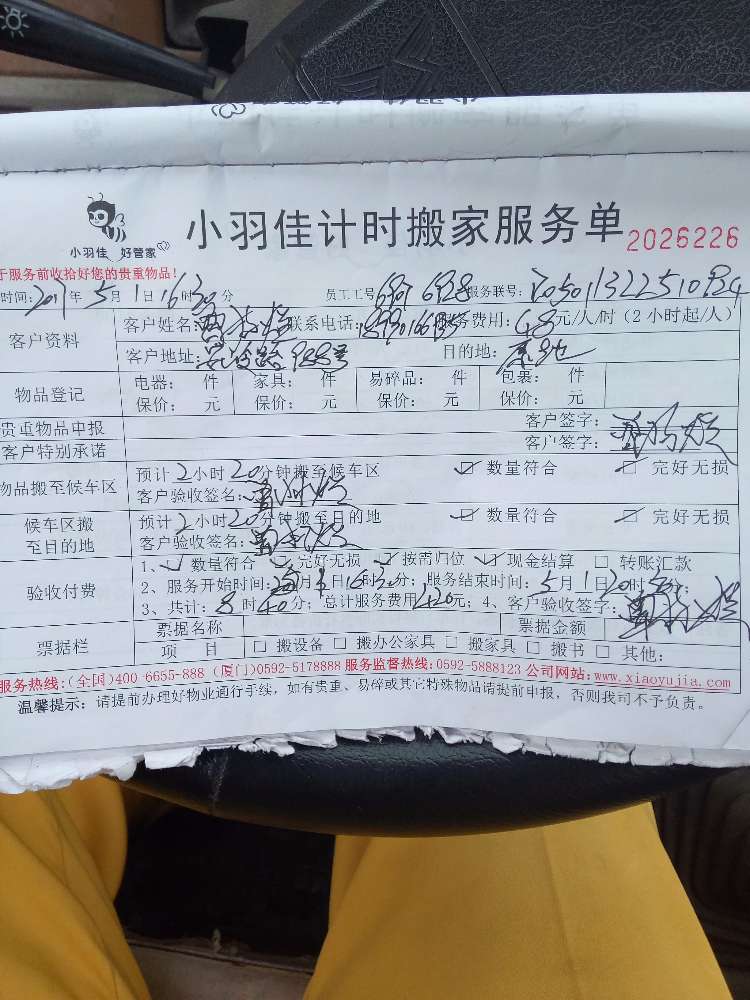 小羽佳 好管家
小羽佳计时搬家服务单
2026226
于服务前收拾好您的贵重物品!
时间: 2017年5月1日16时30分 员工工号 6907 6928 服务联号:
客户资料
客户姓名: 联系电话: 服务费用: 48元/人/时 (2小时起/人)
客户地址: 928号 目的地:
物品登记
电器: 件 家具: 件 易碎品: 件 包裹: 件
保价: 元 保价: 元 保价: 元 保价: 元
贵重物品申报 客户签字:
客户特别承诺 客户签字:
物品搬至候车区
预计2小时20分钟搬至候车区 ☑ 数量符合 ☑ 完好无损
客户验收签名:
候车区搬至目的地
预计2小时20分钟搬至目的地 ☑ 数量符合 ☑ 完好无损
客户验收签名:
验收付费
1、☑ 数量符合 ☑ 完好无损 ☑ 按需归位 ☑ 现金结算 □ 转账汇款
2、服务开始时间: 月1日16时30分; 服务结束时间: 5月1日20时50分;
3、共计: 8时40分; 总计服务费用420元; 4、客户验收签字:
票据栏
票据名称 票据金额
项 目 □ 搬设备 □ 搬办公家具 □ 搬家具 □ 搬书 □ 其他:
服务热线:(全国)400-6655-888 (厦门)0592-5178888 服务监督热线:0592-5888123 公司网站:www.xiaoyujia.com
温馨提示: 请提前办理好物业通行手续, 如有贵重、易碎或其它特殊物品请提前申报, 否则我司不予负责。